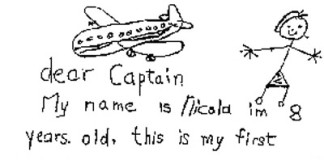 dear Captain
My name is Nicola im 8
years. old, this is my first